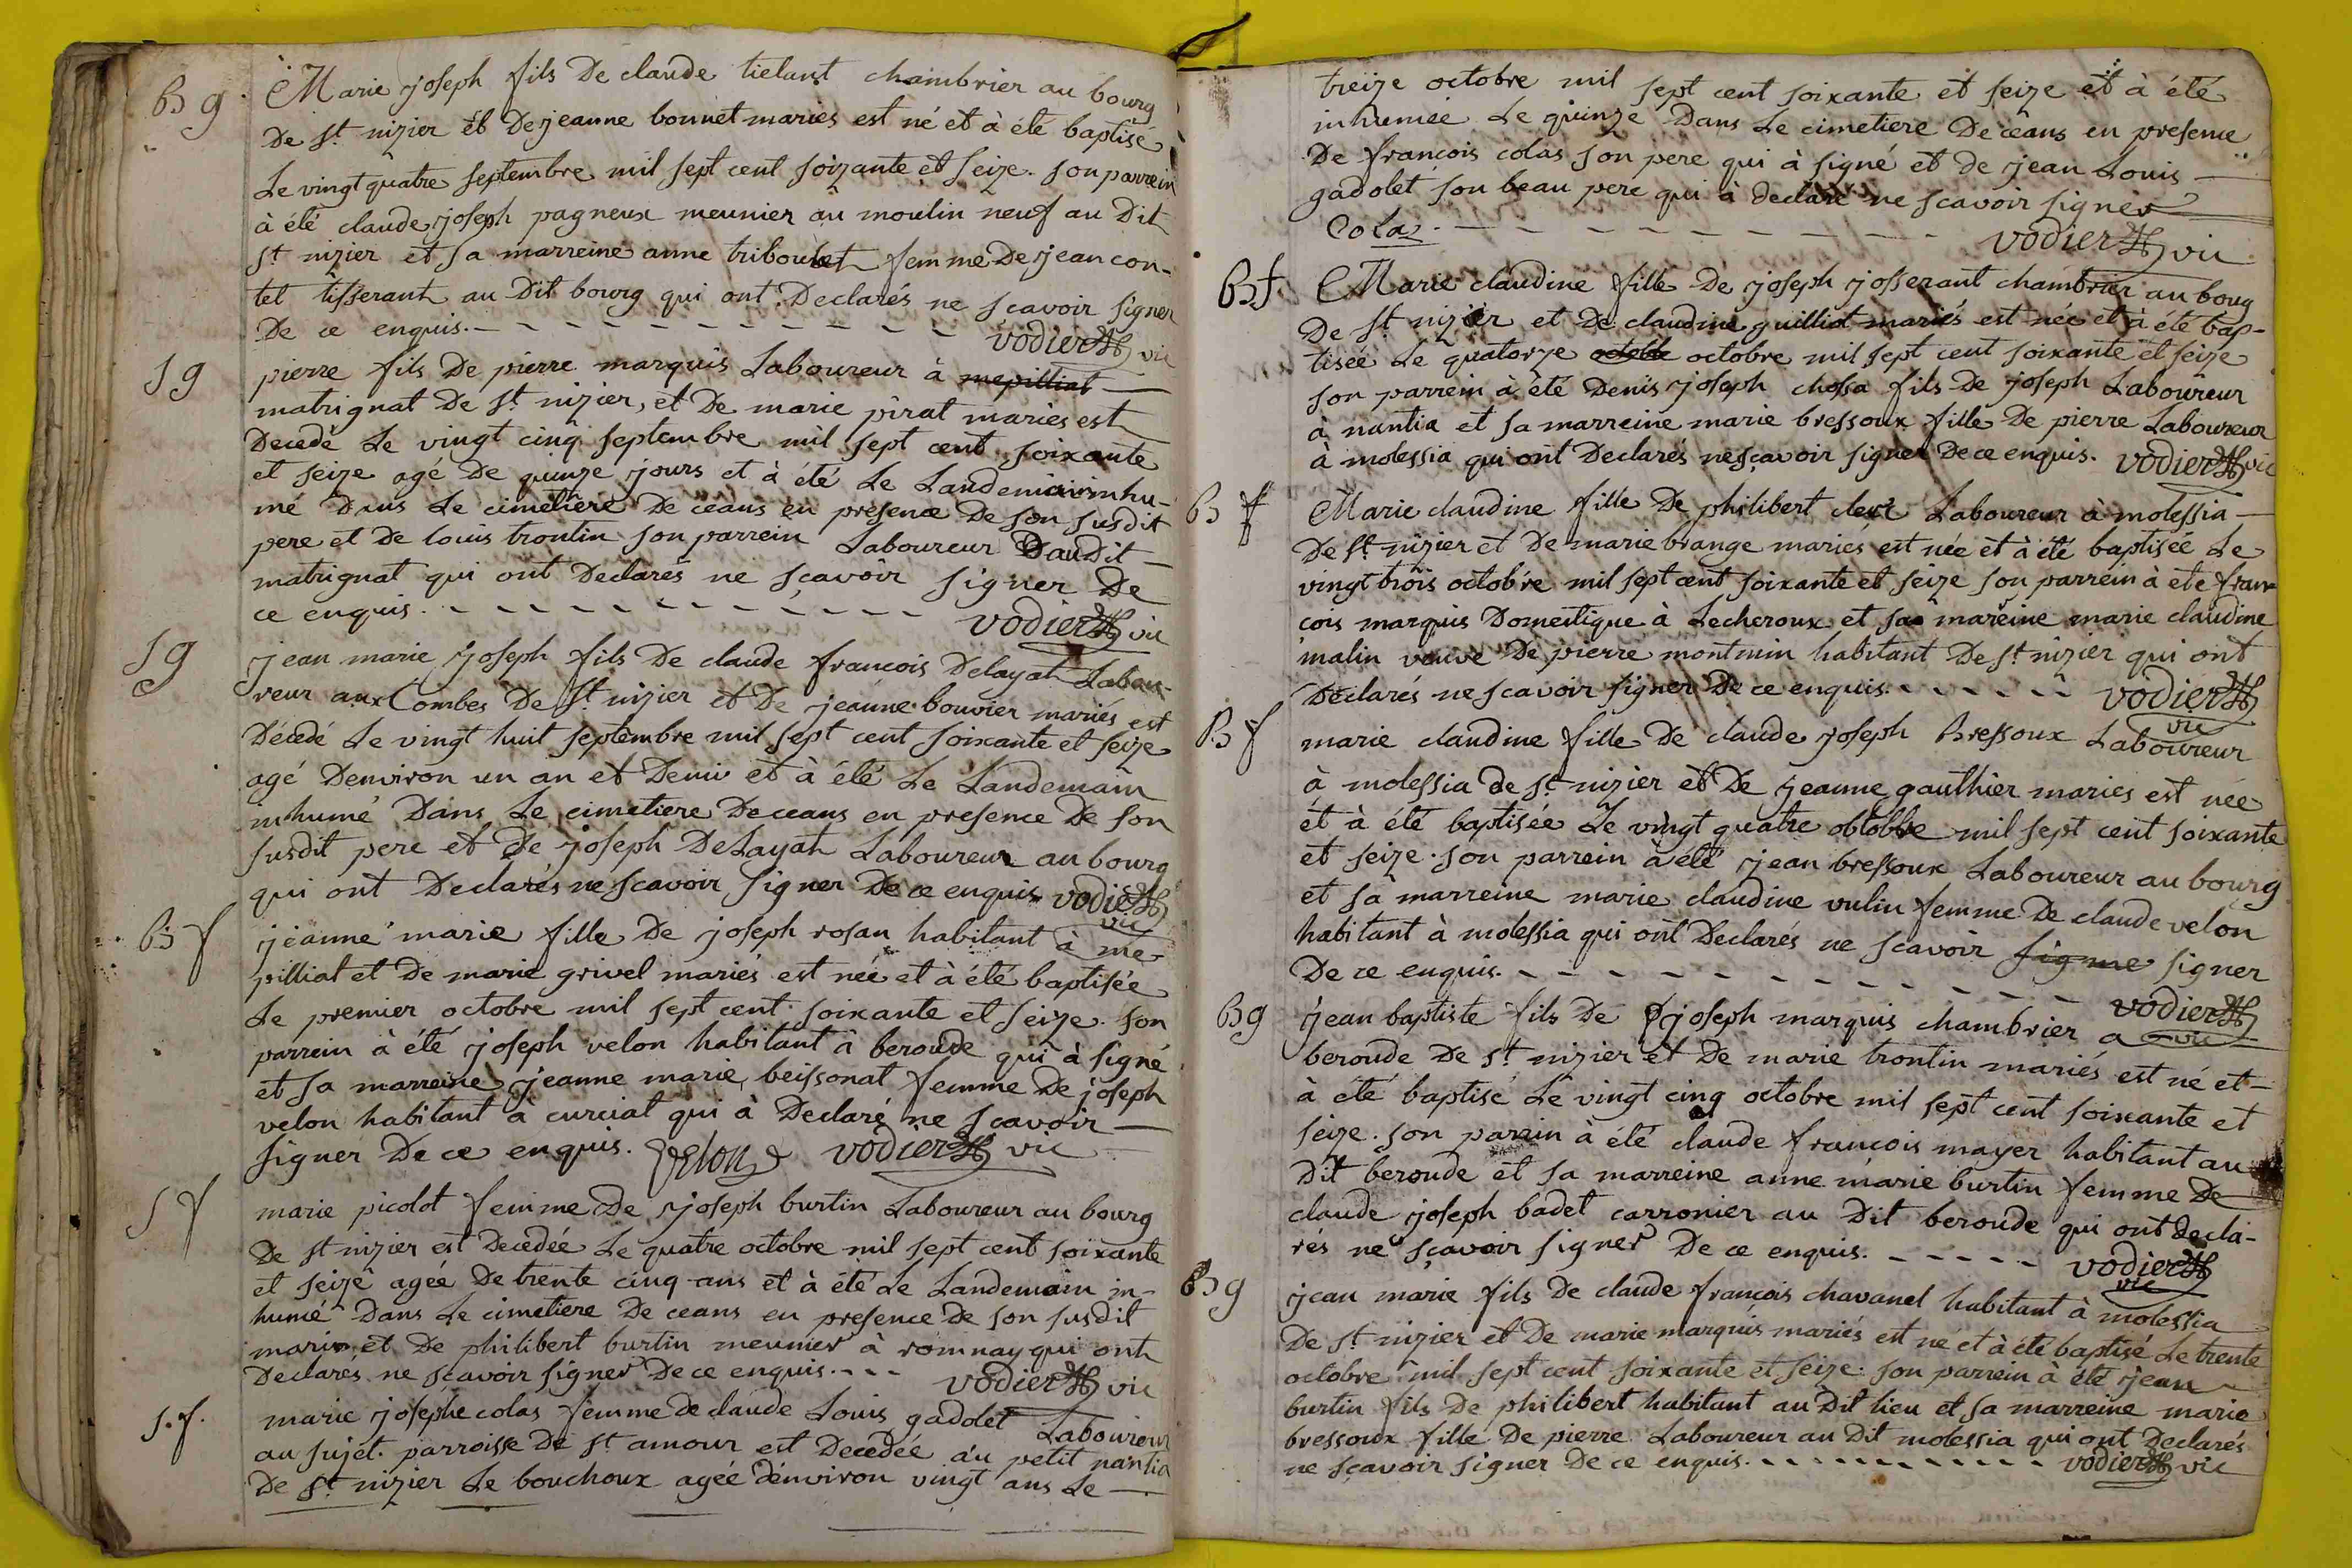 B g Marie joseph fils De claude tielant chambrier au bourg
De st nizier et De jeanne bonnet mariés est né et à été baptisé
Le vingt quatre septembre mil sept cent soixante et seize. son parrein
à été claude joseph pagneux meunier au moulin neuf au Dit
st nizier et sa marreine anne triboulet femme De jean con-
tet tisserant au Dit bourg qui ont Declarés ne scavoir signer
De ce enquis. vodier vic
S g pierre fils De pierre marquis Laboureur à mepilliat
matrignat De st nizier, et De marie pirat mariés est
Decedé Le vingt cinq septembre mil sept cent soixante
et seize agé De quinze jours et à été Le Landemain inhu-
mé Dans Le cimetiere De ceans en presence De son susdit
pere et De louis trontin son parrein Laboureur Daudit
matrignat qui ont Declarés ne sçavoir signer De
ce enquis. vodier vic
S g jean marie joseph fils De claude francois Delayat Labou-
reur aux Combes De st nizier et De jeanne bouvier mariés est
Décedé Le vingt huit septembre mil sept cent soixante et seize
agé Denviron un an et Demi et à été Le Landemain
inhumé Dans Le cimetiere De ceans en presence De son
susdit pere et De joseph DeLayat Laboureur au bourg
qui ont Declarés ne scavoir signer De ce enquis vodier
vic
B f jeanne marie fille De joseph rosan habitant à me-
pilliat et De marie grivel mariés est née et à été baptisée
Le premier octobre mil sept cent soixante et seize. son
parrein à été joseph velon habitant à beroude qui à signé
et sa marreine jeanne marie beissonat femme De joseph
velon habitant à curciat qui à Declaré ne scavoir
signer De ce enquis. Velon vodier vic
S f marie picolot femme De joseph burtin Laboureur au bourg
De st nizier est Decedée Le quatre octobre mil sept cent soixante
et seize agée De trente cinq ans et à été Le Landemain in-
humé Dans Le cimetiere De ceans en presence De son susdit
mari et De philibert burtin meunier à romnay qui ont
Declarés ne scavoir signer De ce enquis. vodier vic
s. f. marie josephe colas femme De claude Louis gadolet Laboureur
au sujet. parroisse De st amour est Decedée au petit nantia
De st nizier Le bouchoux agée denviron vingt ans Le
treize octobre mil sept cent soixante et seize et à été
inhumée Le quinze Dans Le cimetiere De ceans en presence
De francois colas son pere qui à signé et de jean Louis
gadolet son beau pere qui à declaré ne scavoir signer
Colas. vodier vic
B f Marie claudine fille De joseph josserant chambrier au boug
De st nizier et De claudine guilliot mariés est née et à été bap-
tisée Le quatorze octobre octobre mil sept cent soixante et seize
son parrein à été Denis joseph chossa fils De joseph Laboureur
à nantia et sa marreine marie bressoux fille De pierre Laboureur
à molessia qui ont Declarés ne sçavoir signer De ce enquis. vodier vic
B f Marie claudine fille De philibert clerc Laboureur à molessia
De st nizier et De marie brange mariés est née et à été baptisée Le
vingt trois octobre mil sept cent soixante et seize son parrein à ete fran
cois marquis Domestique à Lecheroux et sa mareine marie claudine
malin veuve De pierre montmin habitant De st nizier qui ont
Declarés ne scavoir signer De ce enquis. vodier
vic
B f marie claudine fille De claude joseph Bressoux Laboureur
à molessia de st nizier et De jeanne gauthier mariés est née
et à été baptisée Le vingt quatre octobre mil sept cent soixante
et seize. son parrein à été jean bressoux Laboureur au bourg
et sa marreine marie claudine vulin femme De claude velon
habitant à molessia qui ont Declarés ne scavoir signe signer
De ce enquis. vodier
vic
B g jean baptiste fils De joseph marquis chambrier a
beroude De st nizier et De marie trontin mariés est né et
à été baptisé Le vingt cinq octobre mil sept cent soixante et
seize. son parrein à été claude francois mayer habitant au
Dit beroude et sa marreine anne marie burtin femme De
claude joseph badet carronier au Dit beroude qui ont decla-
rés ne sçavoir signer De ce enquis. vodier
vic
B g jean marie fils De claude françois chavanel habitant à molessia
De st nizier et De marie marquis mariés est né et à été baptisé Le trente
octobre mil sept cent soixante et seize. son parrein à été jean
burtin fils De philibert habitant au Dit lieu et sa marreine marie
bressoux fille De pierre Laboureur au Dit molessia qui ont Declarés
ne sçavoir signer De ce enquis. vodier vic